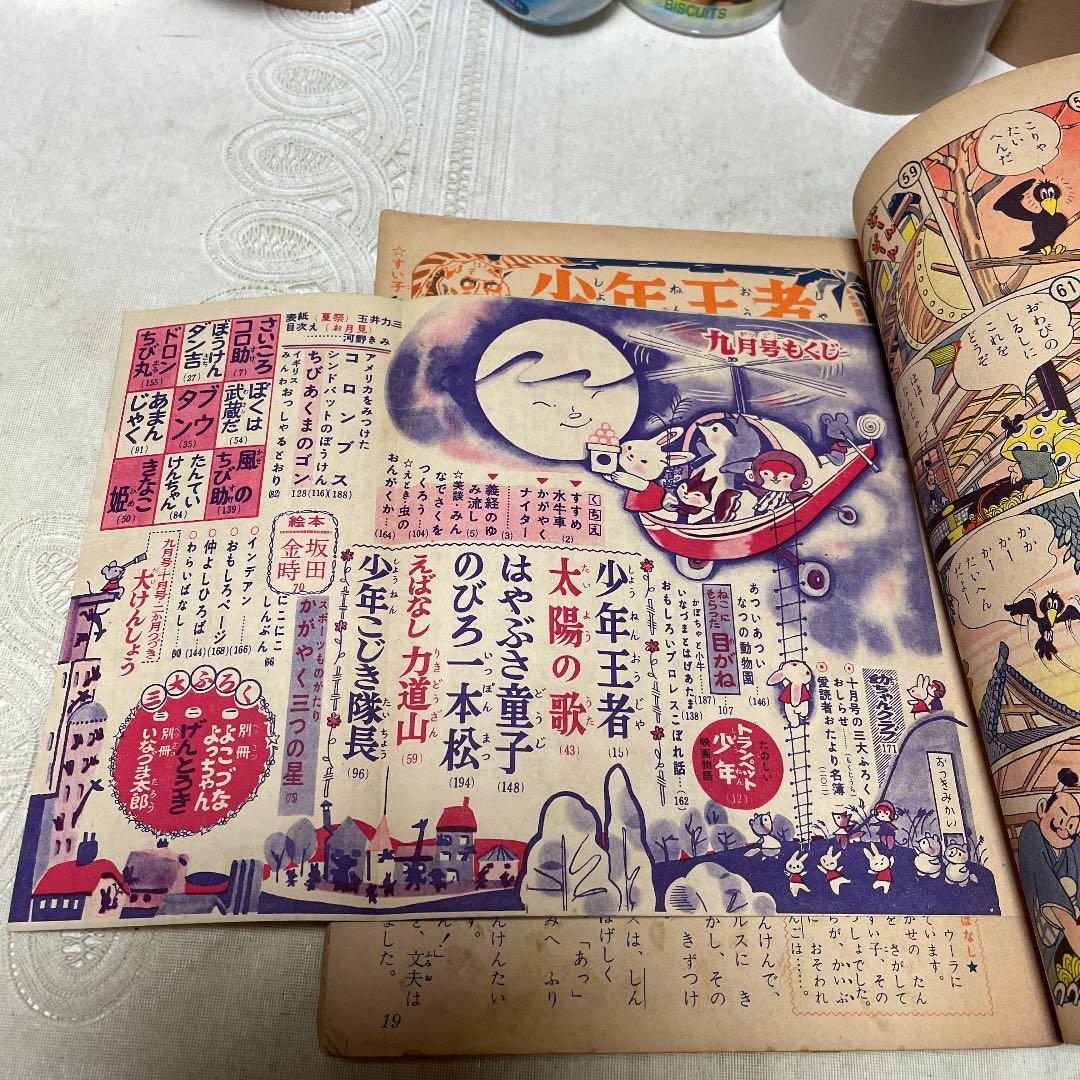 BISCUITS
少年王者
しょうねんおうじゃ
☆すい子
九月号もくじ
がつごう
表紙（夏祭）玉井力三
目次え（お月見）
………河野きみ
さいころ
コロ助(7)
ぼうけん
ダン吉(27)
ドロン
ちび丸(155)
ぼくは
武蔵だ(54)
ブウ
タン(35)
あまん
じゃく(91)
風の
ちび助(139)
たんてい
けんちゃん(84)
きなこ
姫(50)
アメリカをみつけた
コロンブス(188)
シンドバットのぼうけん(116)
ちびあくまのゴン128
イギリス
みんわおっしゃるとおり(82)
くちえ
すすめ
水牛車(2)
▼かがやく
ナイター(3)
▼義経のゆ
み流し(5)
☆美談・みん
なでさくを
つくろう…(104)
☆えとき・虫の
おんがくか…(164)
少年王者(15)
太陽の歌(43)
はやぶさ童子(148)
のびろ一本松(194)
えばなし 力道山(59)
少年こじき隊長(96)
スポーツものがたり
かがやく三つの星(75)
絵本
坂田
金時
70
にこにこ
しんぶん
66
・インデアン………(166)
・おもしろページ…(168)
・仲よしひろば…(144)
・わらいばなし…
九月号・十月号・二か月つづき
大けんしょう
三大ふろく
一 別冊 よこづな よっちゃん
二 げんとうき
三 別冊 いなづま太郎
あついあつい
なつの動物園…(146)
ねこに
もらった 目がね…107
かぼちゃと小牛…(187)
いなづまとはげあたま(138)
おもしろいプロレスこぼれ話…162
たのしい
映画物語
トランペット
少年
(123)
幼年クラブ171
十月号の三大ふろく
おしらせ
愛読者おたより名簿
おつきみかい
59
こりゃ
たい
へんだ
61
おわびの
しるしに
これを
どうぞ
かか
かー
たいへん
だよー
ばなし★
ウーラに
います。
かぜの たん
を さがして
すい子、その
しょでした。
らが、かいぶ
に おそわれ
んごは……。
んけんで、
ルスに き
かし、その
きずつけ
スは、しん
はげしく
「あっ」
みへ ふり
んけんたい
す。
ん！」
と、文夫は
ふみお
ました。
19